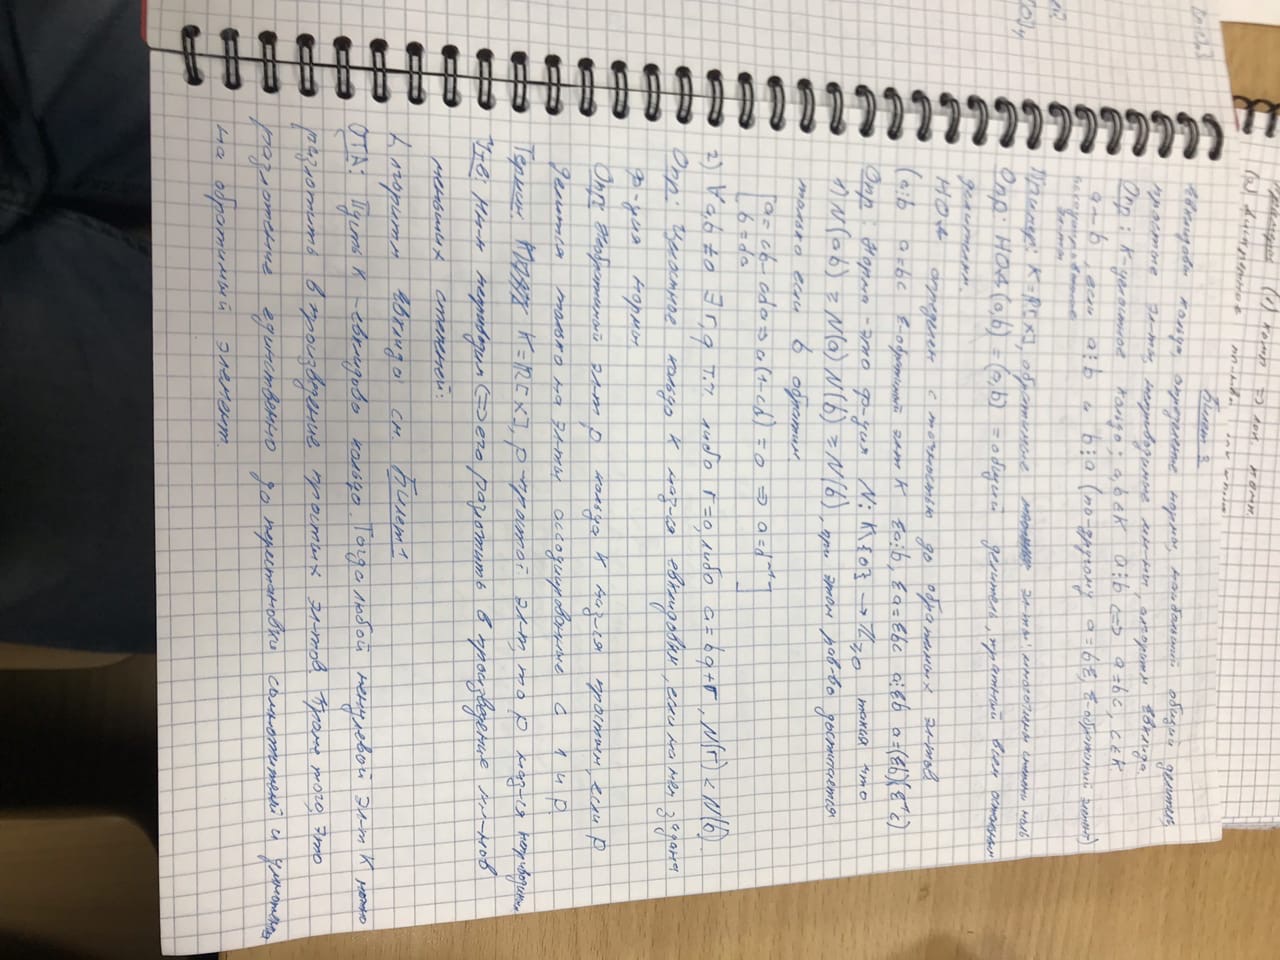 Примеры (1) комп => лок. комп.
(2) дискретное
Билет 3
Евклидовы кольца, определение нормы, наибольший общий делитель,
простые эл-ты, неприводимые мн-ны, алгоритм Евклида.
Опр: K-целостное кольцо; a,b∈K a⋮b <=> a=bc, c∈K.
a~b, если a⋮b и b⋮a (по-другому a=bε, ε-обратимый элемент)
ассоциированные
эл-ты
Пример: K=ℝ[x], обратимые эл-ты: многочлены степени ноль
Опр: НОД(a,b) = (a,b) = общий делитель, кратный всем остальным
делителям.
НОД определен с точностью до обратимых эл-тов
(a⋮b a=bc ε-обратимый элт K εa⋮b, εa=εbc a⋮εb a=(εb)(ε⁻¹c)
Опр: Норма-это ф-ция N: K\{0} → ℤ≥0 такая что
1) N(ab) ≥ N(a) N(b) ≥ N(b), при этом рав-во достигается
только если b обратим
[a=cb=cda => a(1-cd)=0 => a=d⁻¹]
b=da
2) ∀a,b≠0 ∃ r,q т.ч. либо r=0, либо a=bq+r, N(r)<N(b).
Опр: Целостное кольцо K наз-ся евклидовым, если на нем задана
ф-ция нормы
Опр: Необратимый эл-т p кольца K наз-ся простым, если p
делится только на эл-ты ассоциированные с 1 и p.
Термин: K=ℝ[x], p-простой эл-т, то p наз-ся неприводимым
Утв: Мн-н неприводим <=> его разложить в произведение мн-нов
меньших степеней:
Алгоритм Евклида см. Билет 1
ОТА: Пусть K -евклидово кольцо. Тогда любой ненулевой эл-т K можно
разложить в произведение простых эл-тов. Кроме того, это
разложение единственно до перестановки сомножителей и умножения
на обратимый элемент.